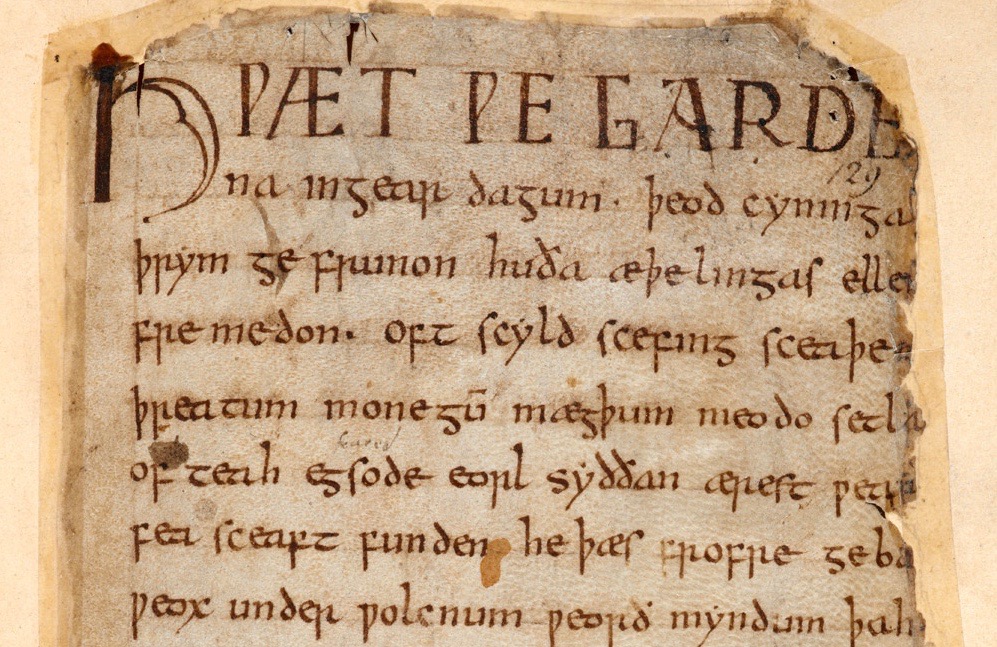 HǷÆT ǷE GARDE
na ingear dagum. þeod cyninga
þrym ge frunon huða æþelingas elle
fre medon. oft scyld scefing sceaþe
þreatum monegū mægþum meodo setla
of teah egsode eorl syððan ærest ƿear
fea sceaft funden he þæs frofre geba
ƿeox under ƿolcnum ƿeorð myndum þah
129